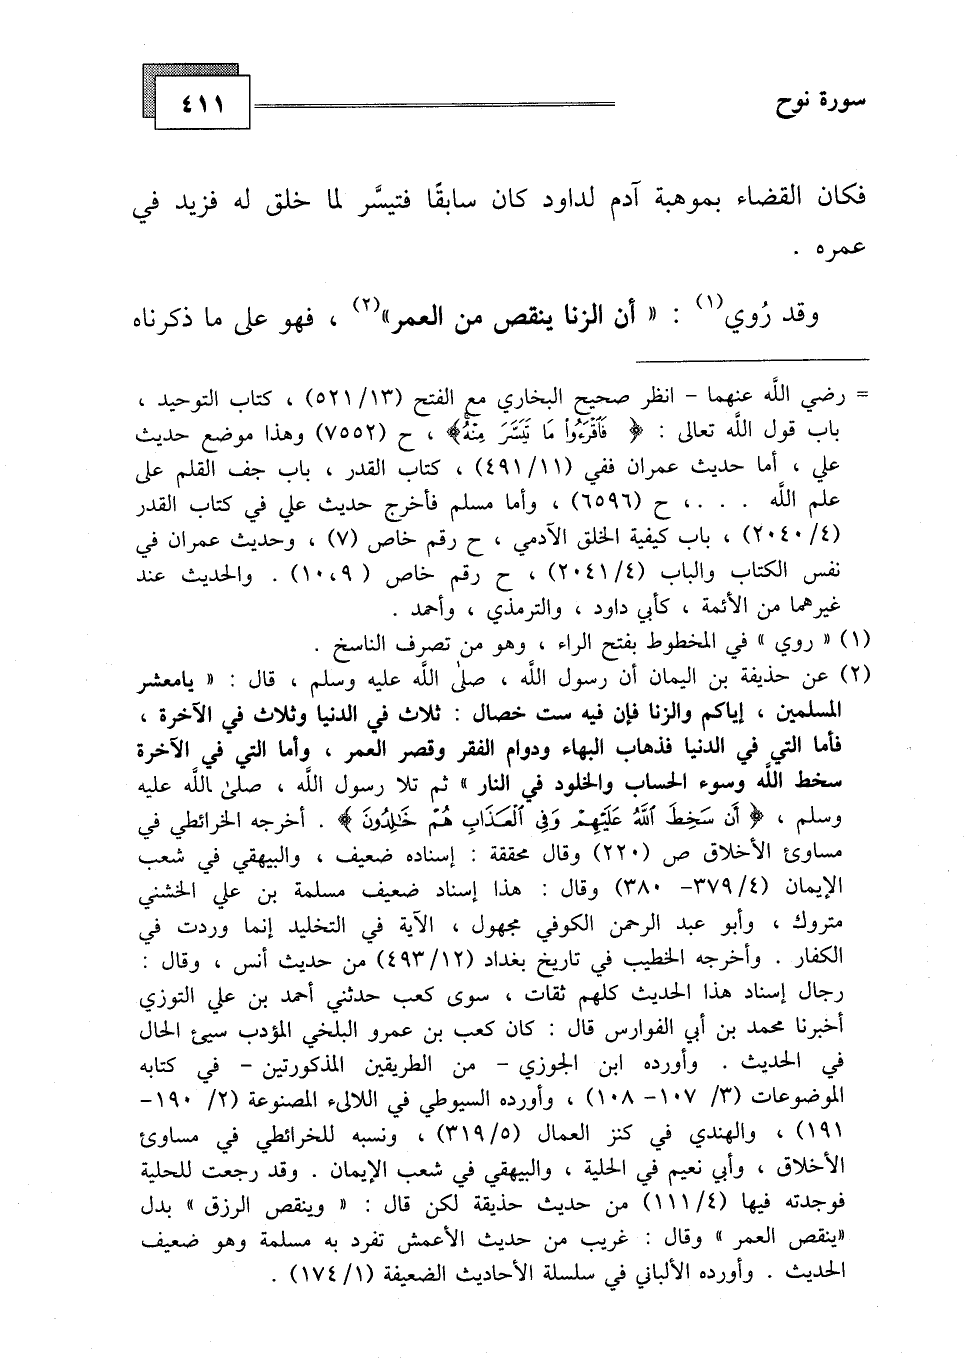 سورة نوح
٤١١
فكان القضاء بموهبة آدم لداود كان سابقًا فتيسَّر لما خلق له فزيد في
عمره .
وقد رُوي(١) : « أن الزنا ينقص من العمر»(٢) ، فهو على ما ذكرناه
= رضي اللَّه عنهما - انظر صحيح البخاري مع الفتح (٥٢١/١٣) ، كتاب التوحيد ،
باب قول اللَّه تعالى : ﴿ فَٱقْرَءُواْ مَا تَيَسَّرَ مِنْهُ﴾ ، ح (٧٥٥٢) وهذا موضع حديث
علي ، أما حديث عمران ففي (٤٩١/١١) ، كتاب القدر ، باب جف القلم على
علم اللَّه . . .، ح (٦٥٩٦) ، وأما مسلم فأخرج حديث علي في كتاب القدر
(٢٠٤٠/٤) ، باب كيفية الخلق الآدمي ، ح رقم خاص (٧) ، وحديث عمران في
نفس الكتاب والباب (٢٠٤١/٤) ، ح رقم خاص ( ١٠،٩) . والحديث عند
غيرهما من الأئمة ، كأبي داود ، والترمذي ، وأحمد .
(١) « روي » في المخطوط بفتح الراء ، وهو من تصرف الناسخ .
(٢) عن حذيفة بن اليمان أن رسول اللَّه ، صلىٰ اللَّه عليه وسلم ، قال : « يامعشر
المسلمين ، إياكم والزنا فإن فيه ست خصال : ثلاث في الدنيا وثلاث في الآخرة ،
فأما التي في الدنيا فذهاب البهاء ودوام الفقر وقصر العمر ، وأما التي في الآخرة
سخط اللَّه وسوء الحساب والخلود في النار » ثم تلا رسول اللَّه ، صلىٰ اللَّه عليه
وسلم ، ﴿ أَن سَخِطَ ٱللَّهُ عَلَيْهِمْ وَفِى ٱلْعَذَابِ هُمْ خَٰلِدُونَ ﴾ . أخرجه الخرائطي في
مساوئ الأخلاق ص (٢٢٠) وقال محققة : إسناده ضعيف ، والبيهقي في شعب
الإيمان (٣٧٩/٤- ٣٨٠) وقال : هذا إسناد ضعيف مسلمة بن علي الخشني
متروك ، وأبو عبد الرحمن الكوفي مجهول ، الآية في التخليد إنما وردت في
الكفار . وأخرجه الخطيب في تاريخ بغداد (٤٩٣/١٢) من حديث أنس ، وقال :
رجال إسناد هذا الحديث كلهم ثقات ، سوى كعب حدثني أحمد بن علي التوزي
أخبرنا محمد بن أبي الفوارس قال : كان كعب بن عمرو البلخي المؤدب سيئ الحال
في الحديث . وأورده ابن الجوزي - من الطريقين المذكورتين - في كتابه
الموضوعات (٣/ ١٠٧- ١٠٨) ، وأورده السيوطي في اللالىء المصنوعة (٢/ ١٩٠-
١٩١) ، والهندي في كنز العمال (٣١٩/٥) ، ونسبه للخرائطي في مساوئ
الأخلاق ، وأبي نعيم في الحلية ، والبيهقي في شعب الإيمان . وقد رجعت للحلية
فوجدته فيها (١١١/٤) من حديث حذيقة لكن قال : « وينقص الرزق » بدل
«ينقص العمر » وقال : غريب من حديث الأعمش تفرد به مسلمة وهو ضعيف
الحديث . وأورده الألباني في سلسلة الأحاديث الضعيفة (١٧٤/١) .